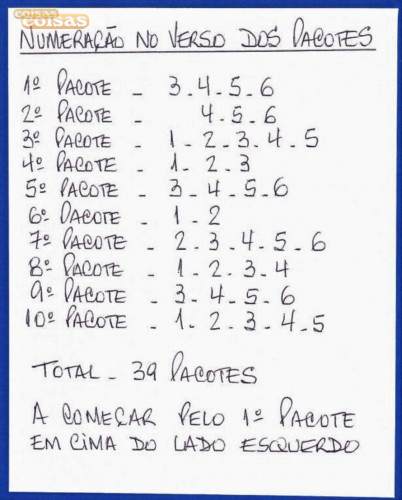 coisas
coisas
NUMERAÇÃO NO VERSO DOS PACOTES
1º PACOTE - 3.4.5.6
2º PACOTE 4.5.6
3º PACOTE - 1-2.3.4.5
4º PACOTE - 1-2.3
5º PACOTE - 3-4.5.6
6º PACOTE - 1-2
7º PACOTE - 2.3.4.5-6
8º PACOTE - 1-2.3.4
9º PACOTE - 3-4.5.6
10º PACOTE - 1.2-3.4.5
TOTAL - 39 PACOTES
A COMEÇAR PELO 1º PACOTE
EM CIMA DO LADO ESQUERDO